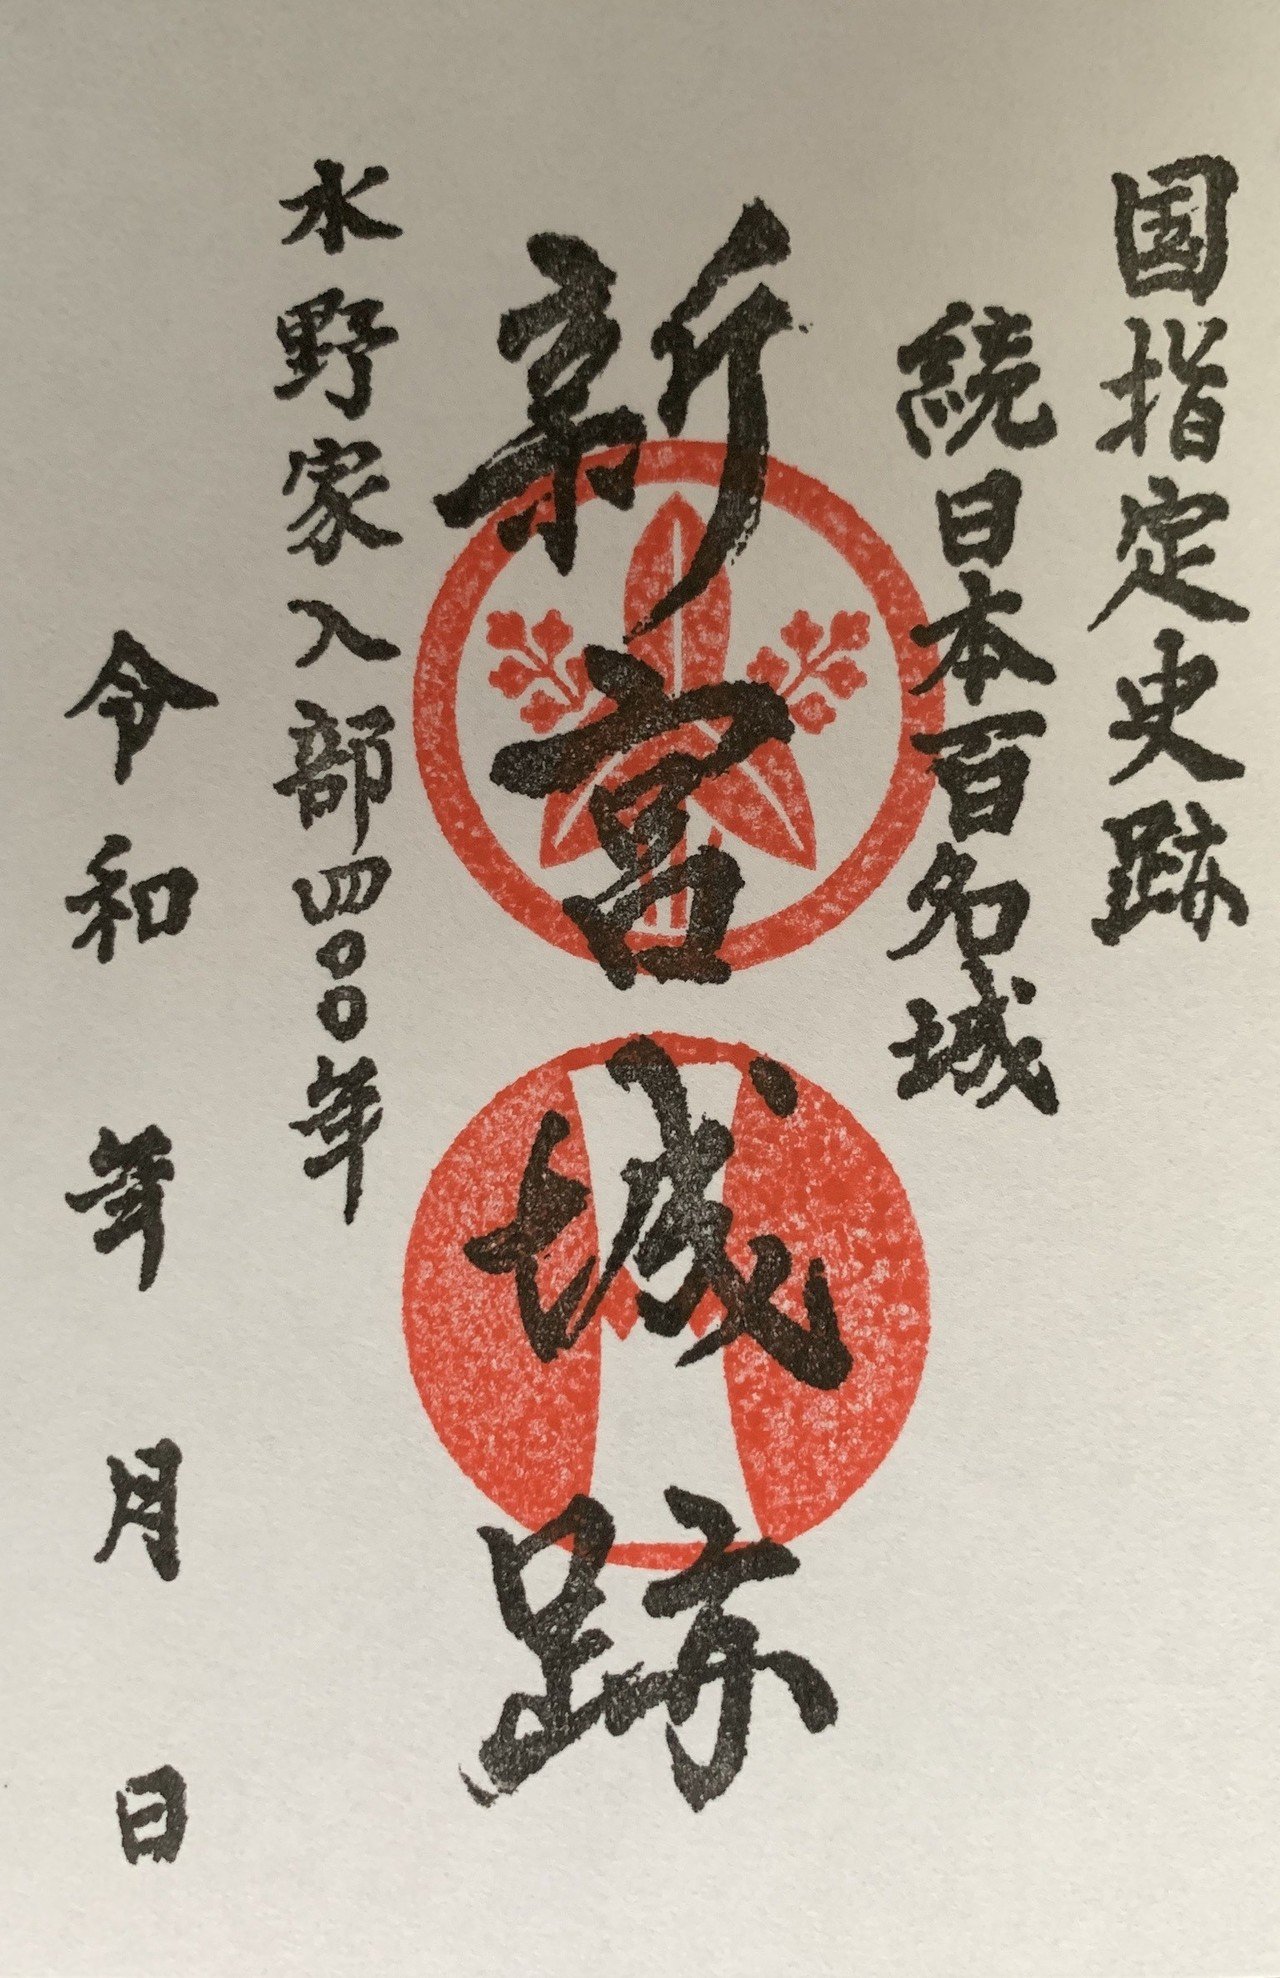 国指定史跡
続日本百名城
新宮城跡
水野家入部四〇〇年
令和 年 月 日